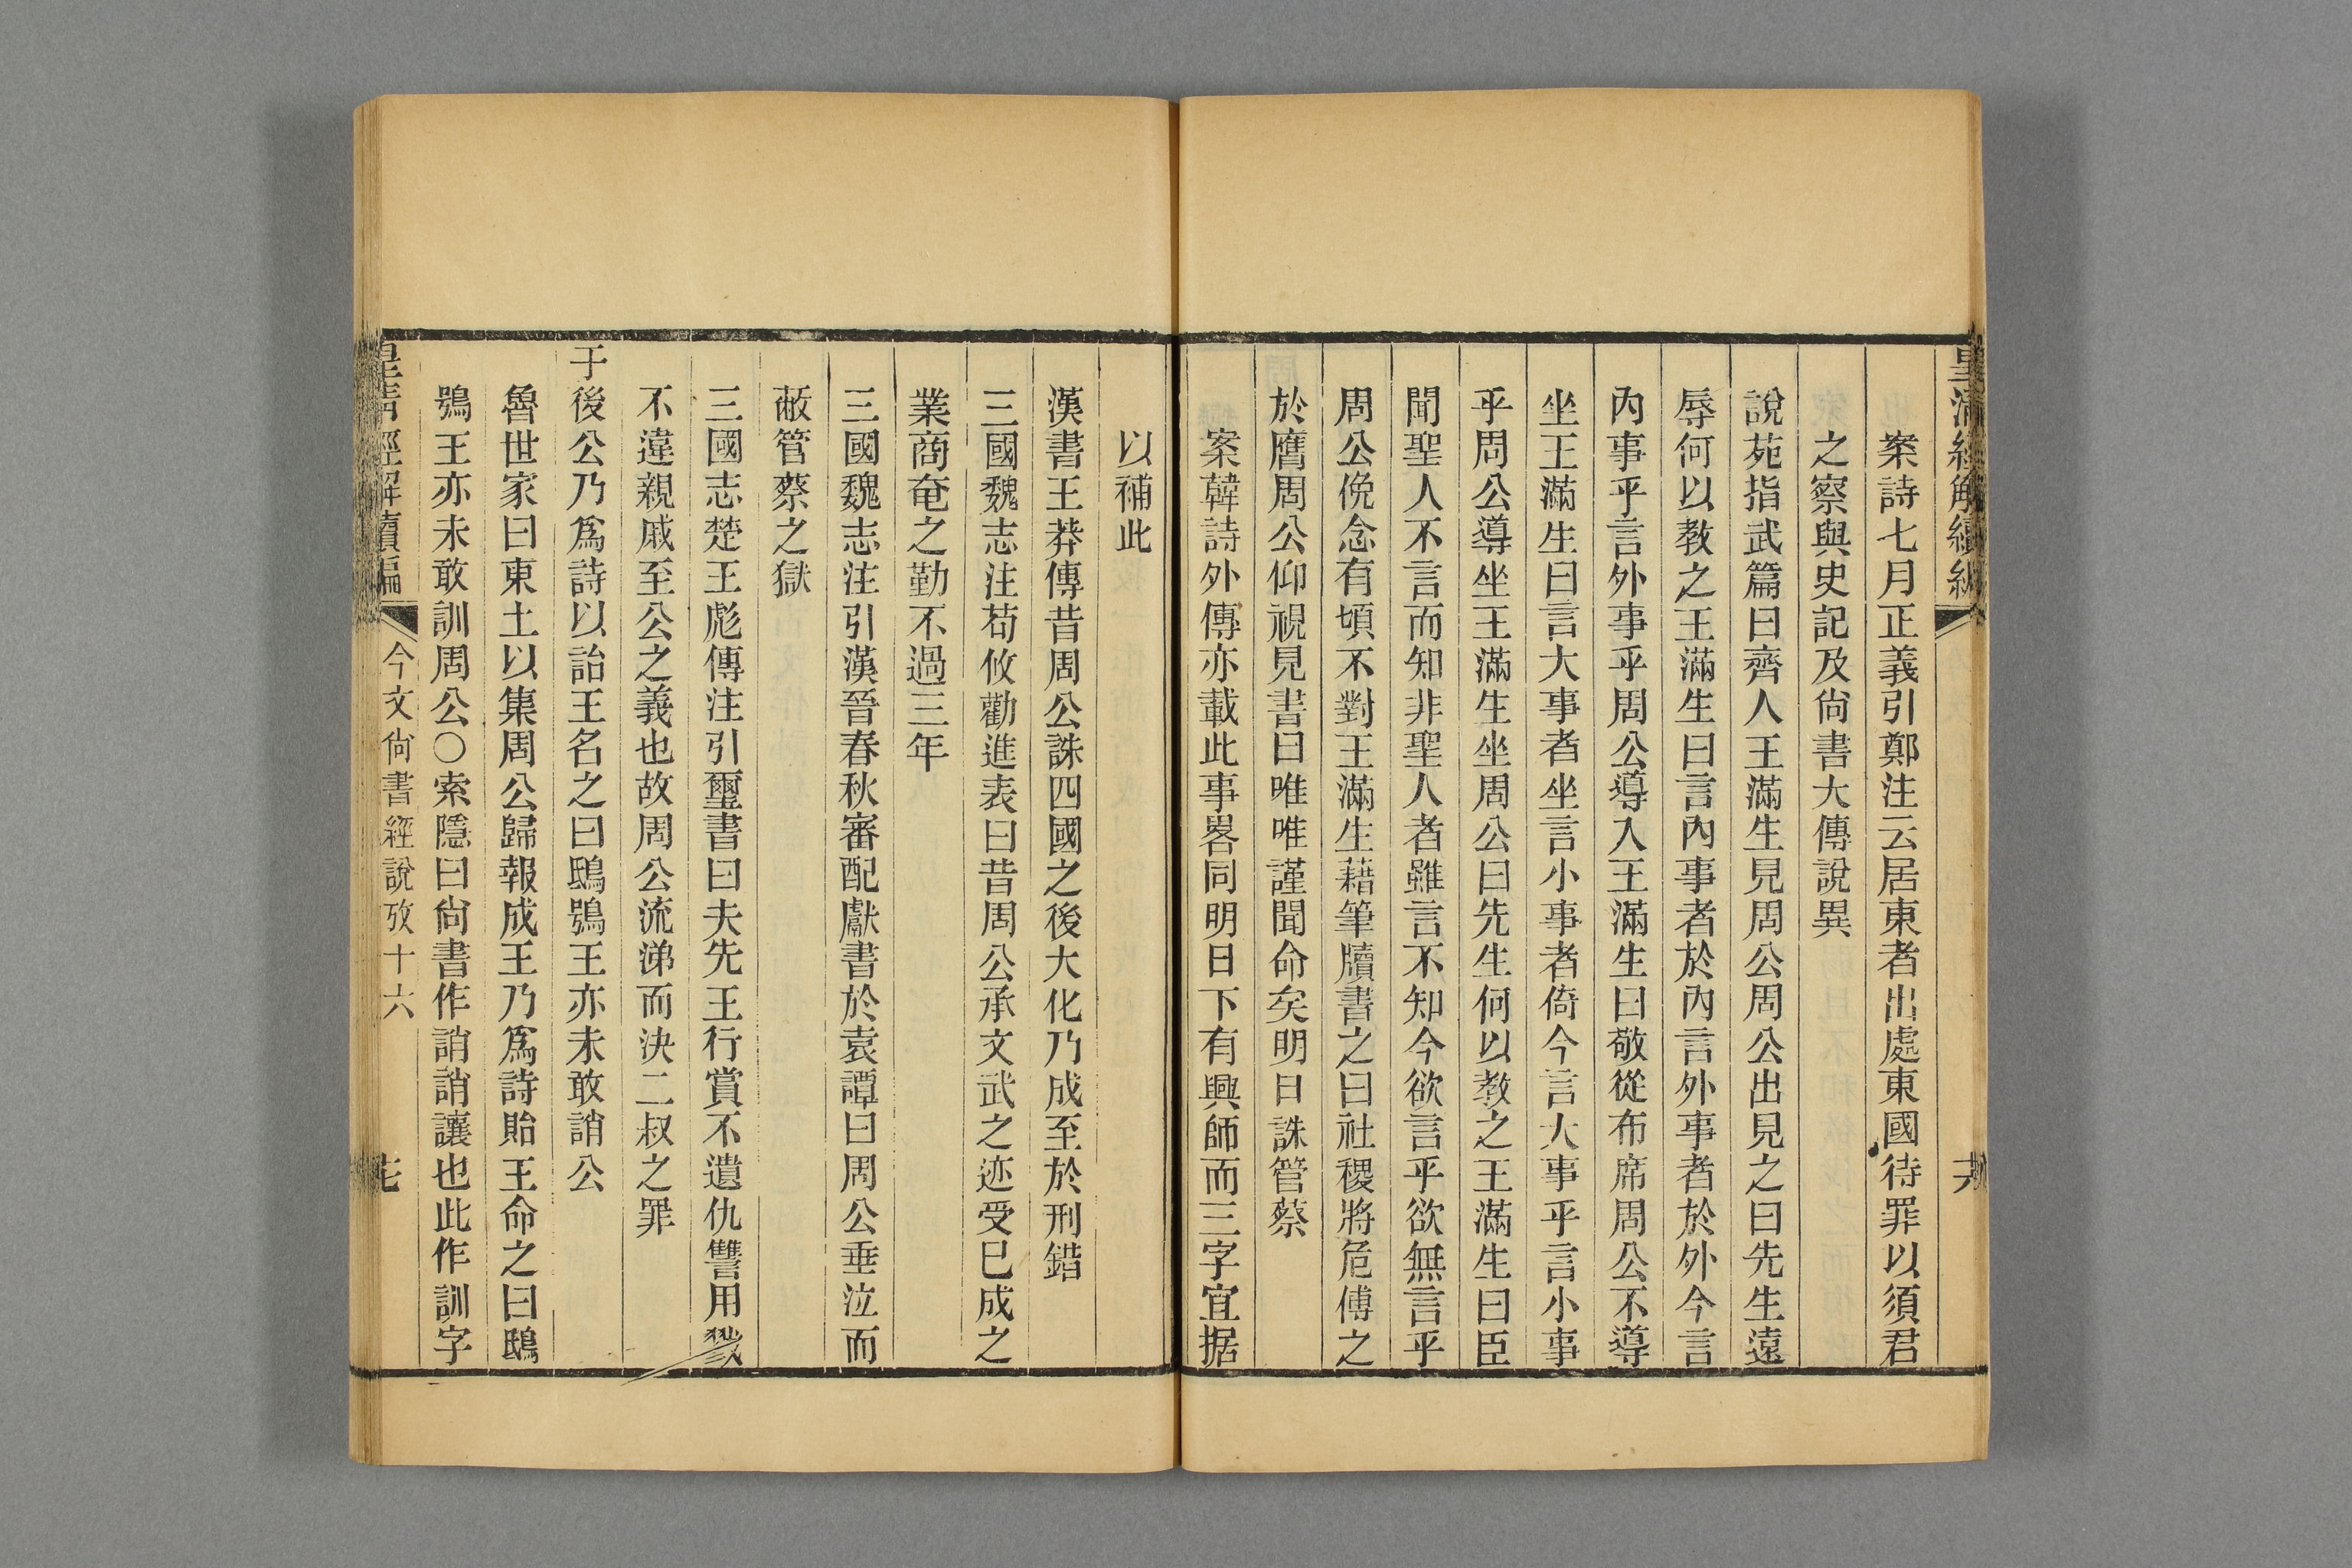 皇清經解續編
六
案詩七月正義引鄭注云居東者出處東國待罪以須君
之察與史記及尙書大傳說異
說苑指武篇曰齊人王滿生見周公周公出見之曰先生遠
辱何以教之王滿生曰言內事者於內言外事者於外今言
內事乎言外事乎周公導入王滿生曰敬從布席周公不導
坐王滿生曰言大事者坐言小事者倚今言大事乎言小事
乎周公導坐王滿生坐周公曰先生何以教之王滿生曰臣
聞聖人不言而知非聖人者雖言不知今欲言乎欲無言乎
周公俛念有頃不對王滿生藉筆牘書之曰社稷將危傅之
於膺周公仰視見書曰唯唯謹聞命矣明日誅管蔡
案韓詩外傳亦載此事畧同明日下有興師而三字宜据
以補此
漢書王莽傳昔周公誅四國之後大化乃成至於刑錯
三國魏志注荀攸勸進表曰昔周公承文武之迹受巳成之
業商奄之勤不過三年
三國魏志注引漢晉春秋審配獻書於袁譚曰周公垂泣而
蔽管蔡之獄
三國志楚王彪傳注引璽書曰夫先王行賞不遺仇讐用戮
不違親戚至公之義也故周公流涕而決二叔之罪
于後公乃爲詩以詒王名之曰鴟鴞王亦未敢誚公
魯世家曰東土以集周公歸報成王乃爲詩貽王命之曰鴟
鴞王亦未敢訓周公○索隱曰尙書作誚誚讓也此作訓字
皇清經解續編
今文尙書經說攷十六